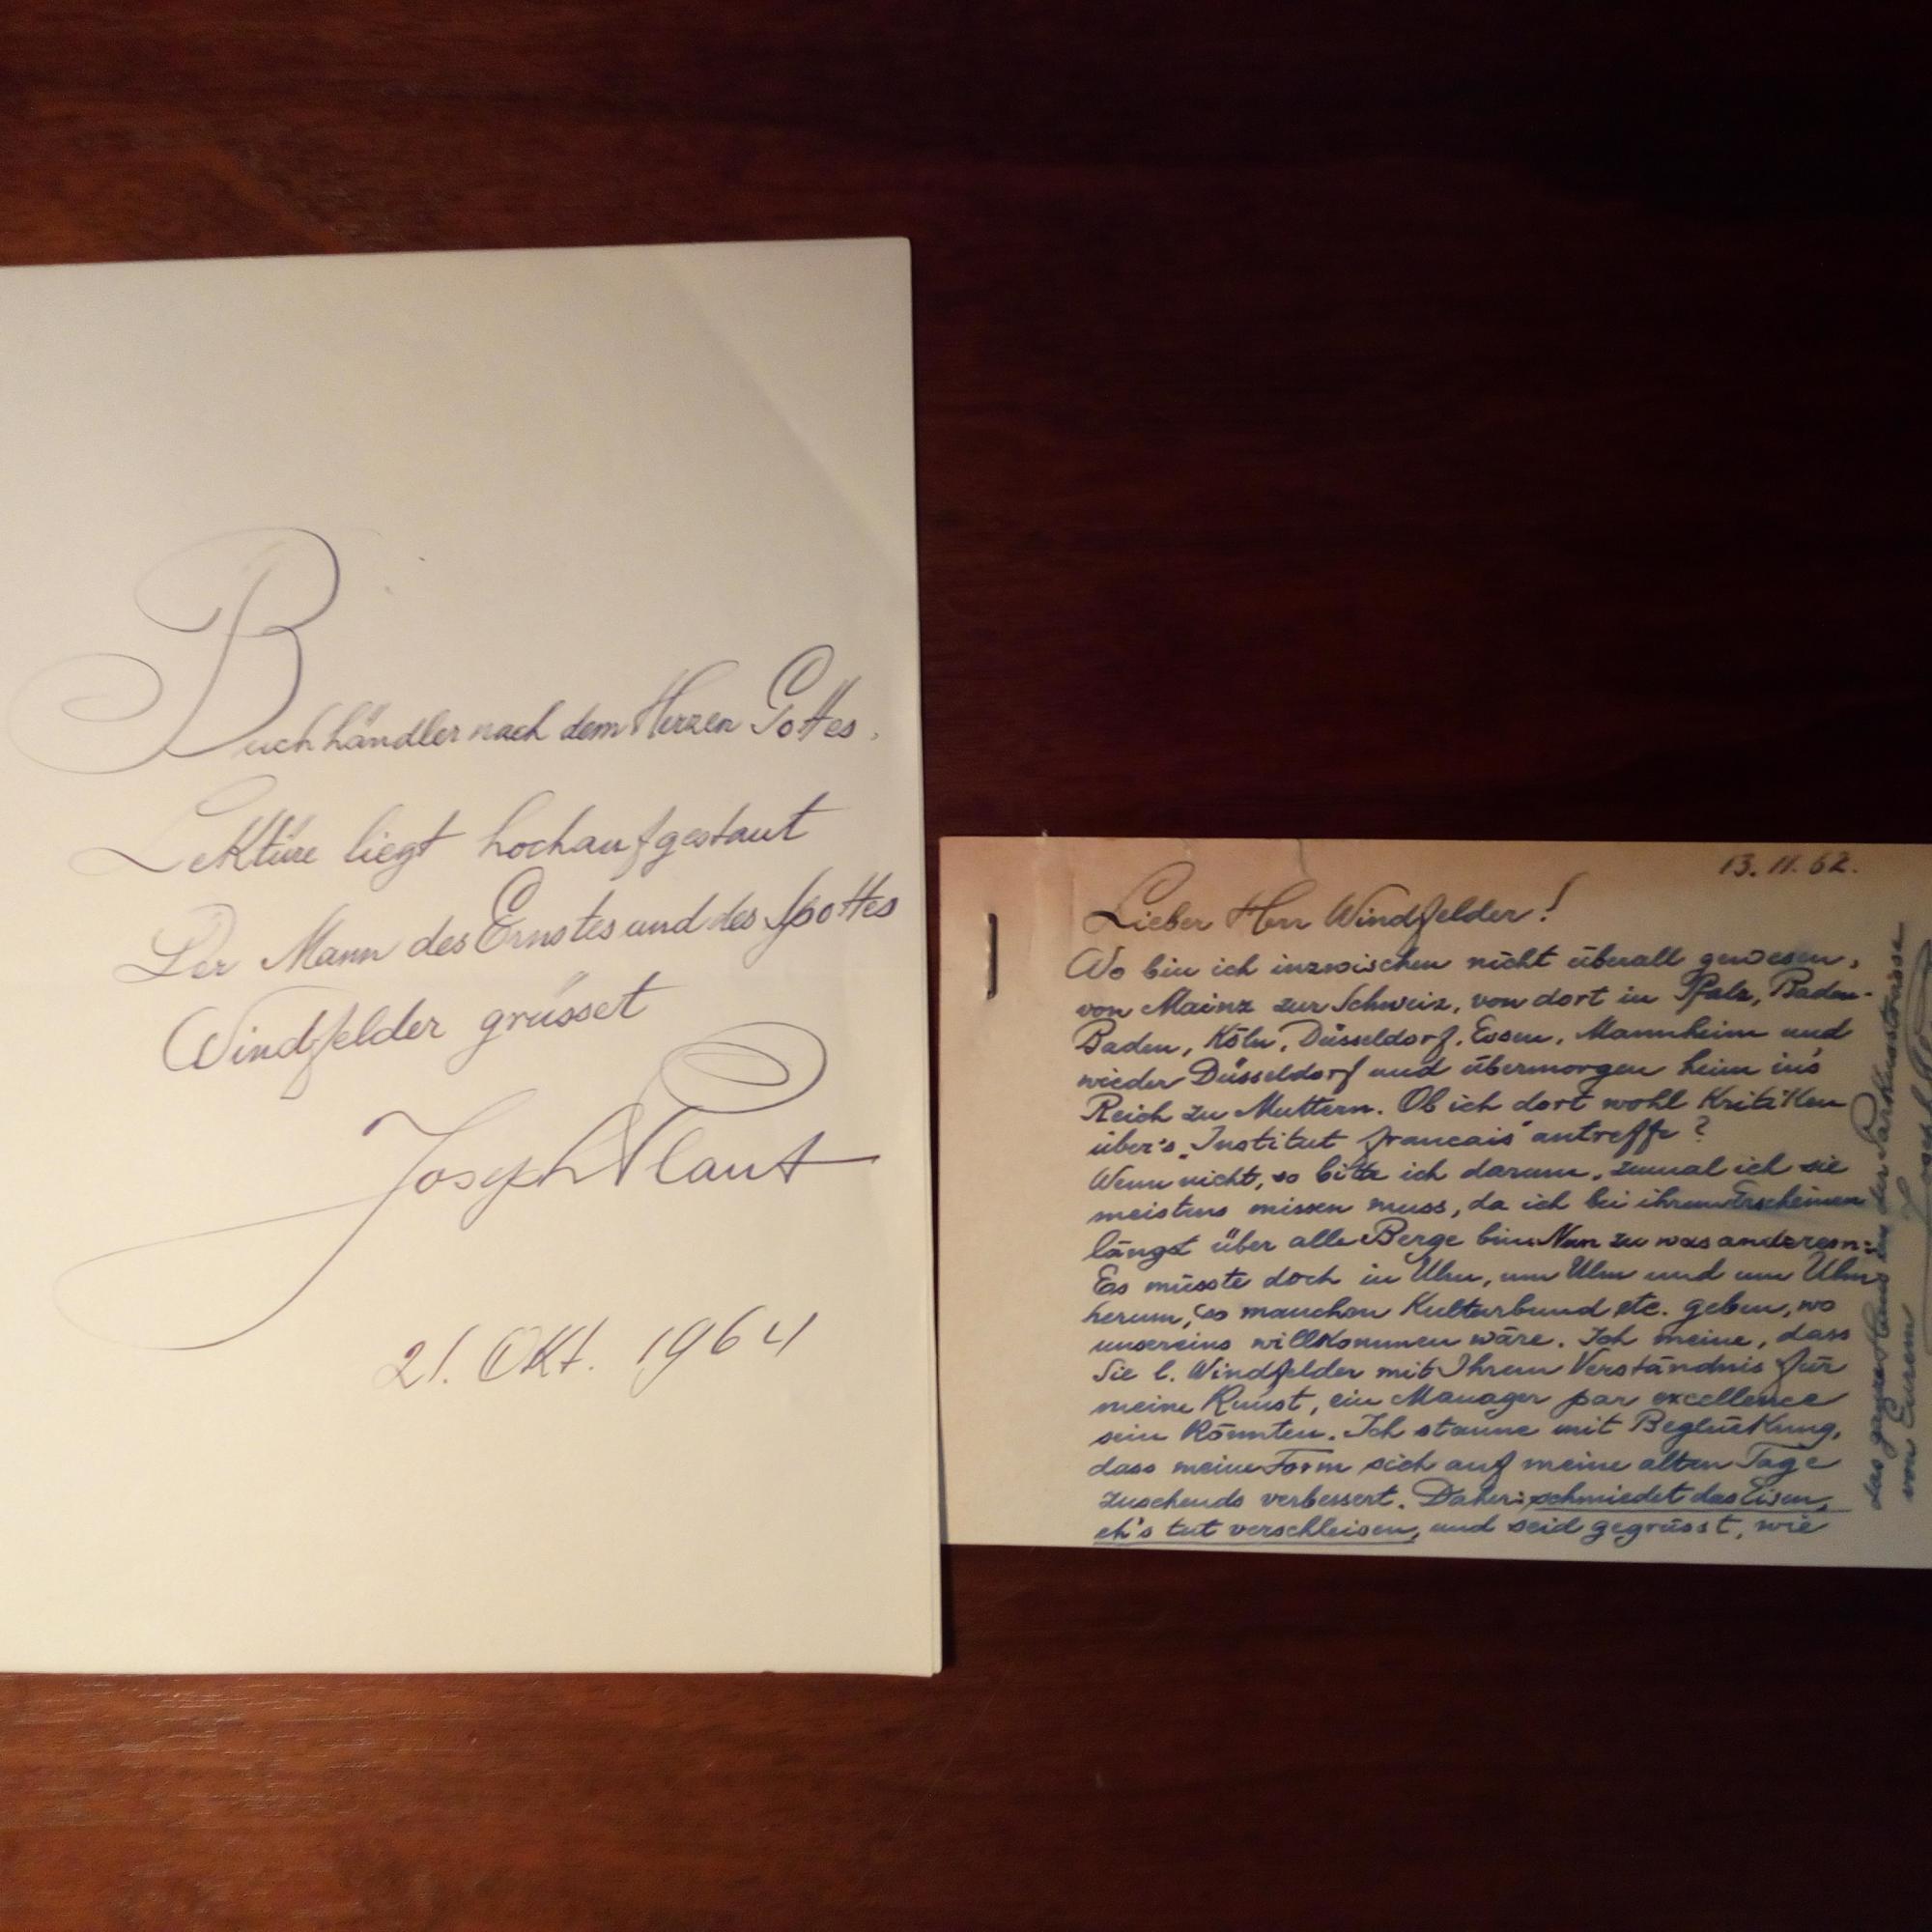 Buchhändler nach dem Herzen Gottes,
Lektüre liegt hochaufgestaut
Der Mann des Ernstes und des Spottes
Windfelder grüsset
Joseph Plaut
21. Okt. 1964
13. 11. 62.
Lieber Herr Windfelder!
Wo bin ich inzwischen nicht überall gewesen,
von Mainz zur Schweiz, von dort in Pfalz, Baden-
Baden, Köln, Düsseldorf, Essen, Mannheim und
wieder Düsseldorf und übermorgen heim ins
Reich zu Muttern. Ob ich dort wohl Kritiken
über's „Institut francais" antreffe?
Wenn nicht, so bitte ich darum, zumal ich sie
meistens missen muss, da ich bei ihrem Erscheinen
längst über alle Berge bin. Nun zu was anderem:
Es müsste doch in Ulm, um Ulm und um Ulm
herum, so manchen Kulturbund etc. geben, wo
unsereins willkommen wäre. Ich meine, dass
Sie l. Windfelder mit Ihrem Verständnis für
meine Kunst, ein Manager par excellence
sein könnten. Ich staune mit Beglückung,
dass meine Form sich auf meine alten Tage
zusehends verbessert. Daher: schmiedet das Eisen,
eh's tut verschleisen, und seid gegrüsst, wie
das ganze Haus in der Parkstrasse
von Eurem
Joseph